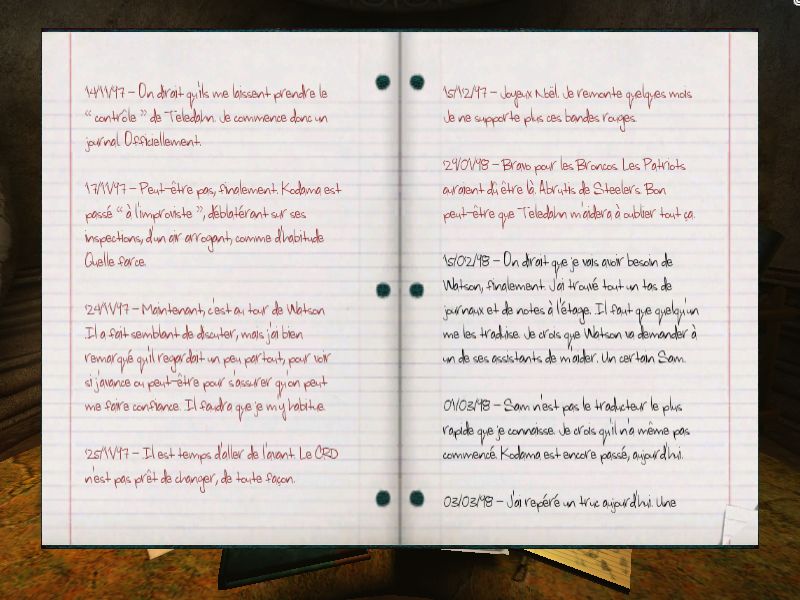 14/11/97 – On dirait qu'ils me laissent prendre le
“ contrôle ” de Teledahn. Je commence donc un
journal. Officiellement.
17/11/97 – Peut-être pas, finalement. Kodama est
passé “ à l'improviste ”, déblatérant sur ses
inspections, d'un air arrogant, comme d'habitude.
Quelle farce.
24/11/97 – Maintenant, c'est au tour de Watson.
Il a fait semblant de discuter, mais j'ai bien
remarqué qu'il regardait un peu partout, pour voir
si j'avance ou peut-être pour s'assurer qu'on peut
me faire confiance. Il faudra que je m'y habitue.
25/11/97 – Il est temps d'aller de l'avant. Le CRD
n'est pas prêt de changer, de toute façon.
15/12/97 – Joyeux Noël. Je remonte quelques mois.
Je ne supporte plus ces bandes rouges.
29/01/98 – Bravo pour les Broncos. Les Patriots
auraient dû être là. Abrutis de Steelers. Bon
peut-être que Teledahn m'aidera à oublier tout ça.
15/02/98 – On dirait que je vais avoir besoin de
Watson, finalement. J'ai trouvé tout un tas de
journaux et de notes à l'étage. Il faut que quelqu'un
me les traduise. Je crois que Watson va demander à
un de ses assistants de m'aider. Un certain Sam.
01/03/98 – Sam n'est pas le traducteur le plus
rapide que je connaisse. Je crois qu'il n'a même pas
commencé. Kodama est encore passé, aujourd'hui.
03/03/98 – J'ai repéré un truc aujourd'hui. Une